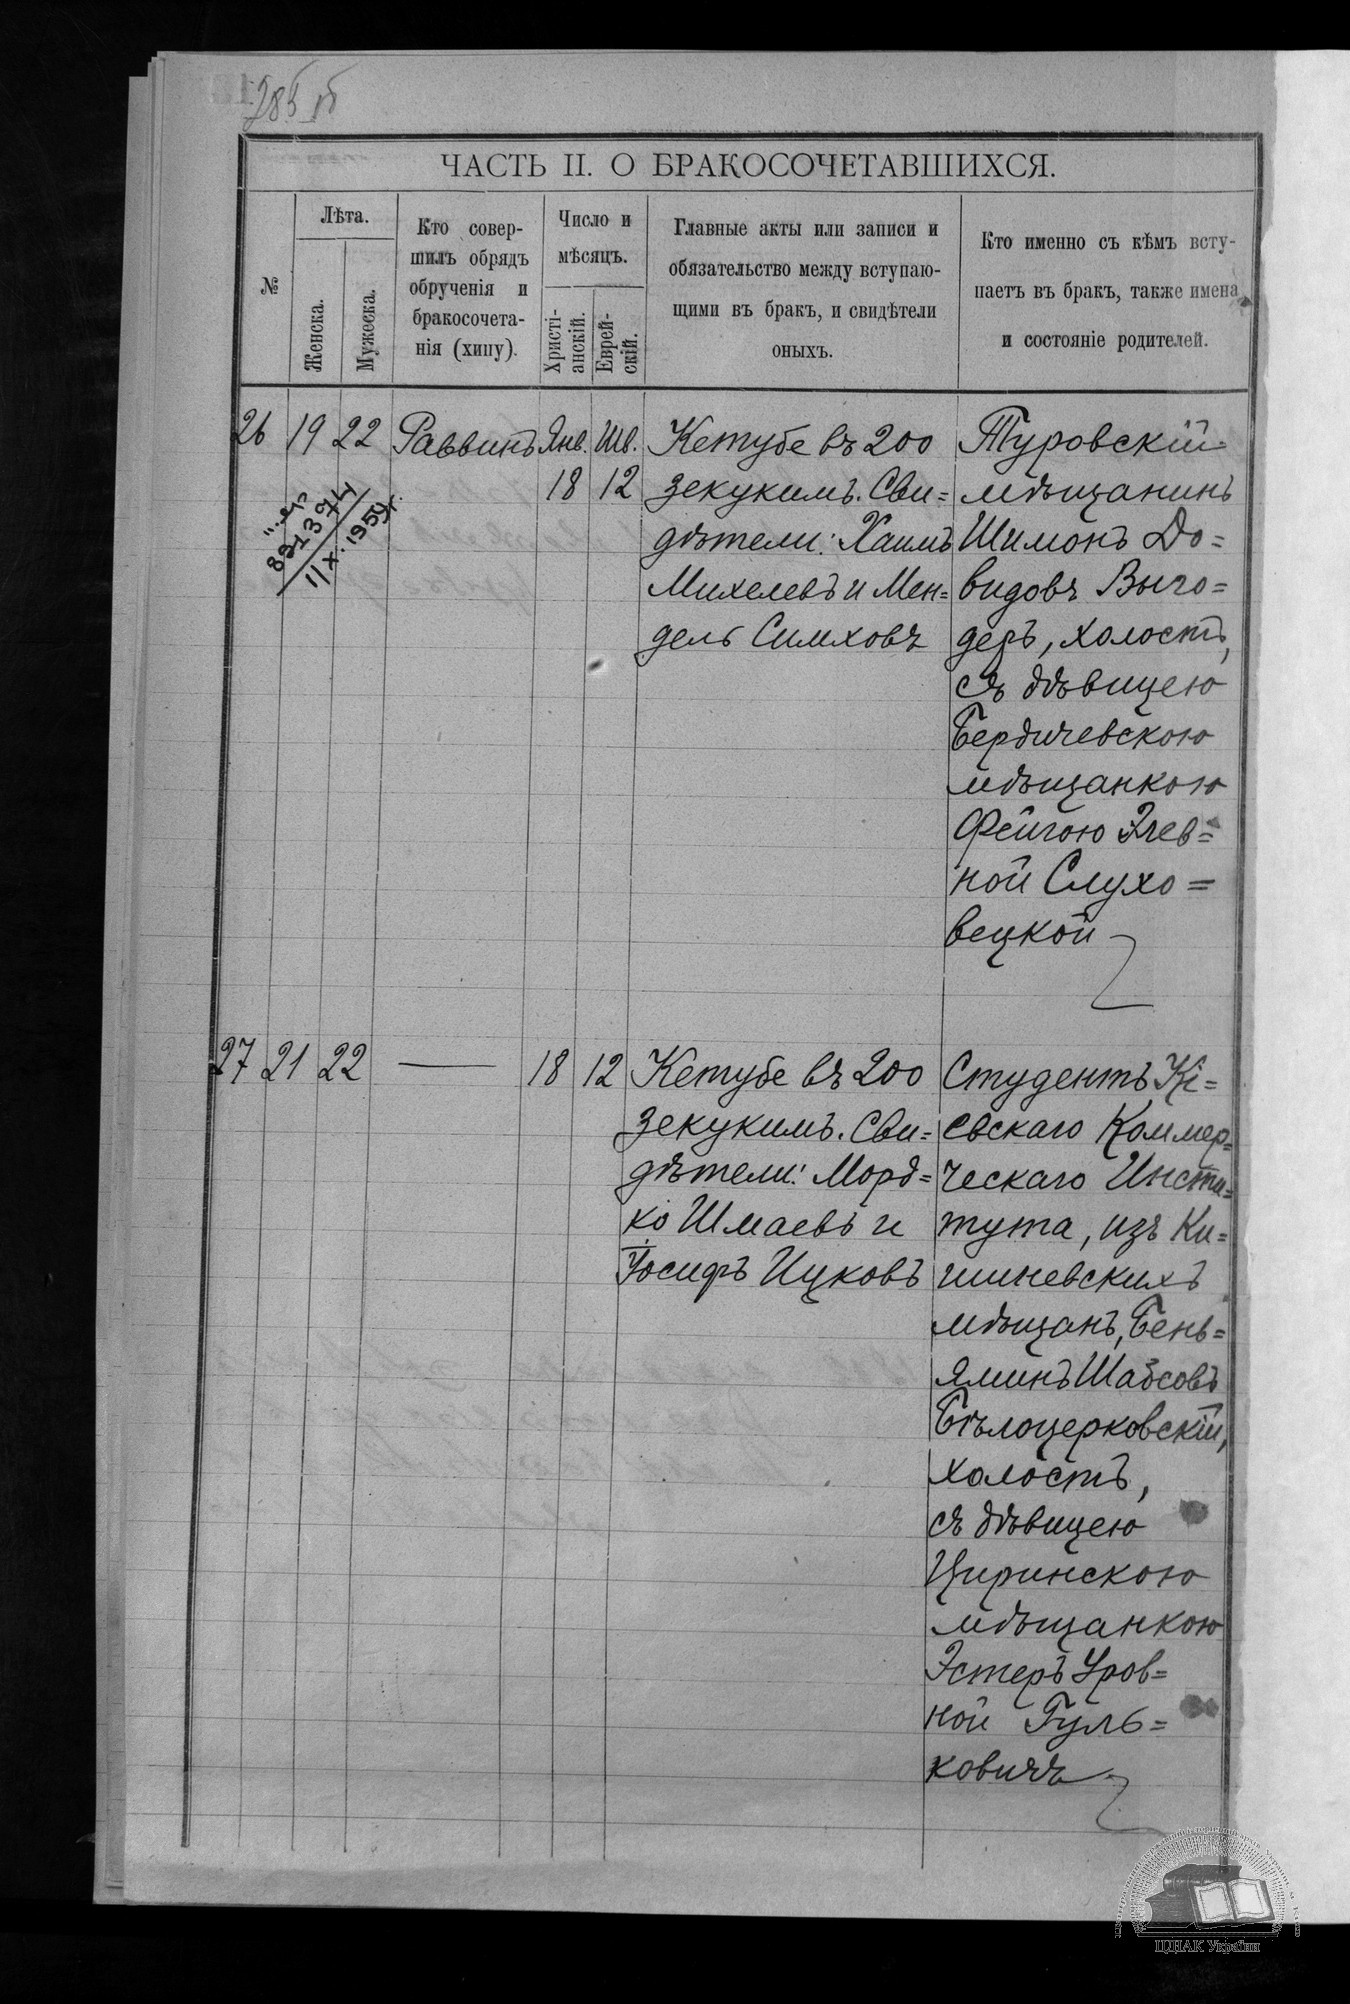 ЧАСТЬ II. О БРАКОСОЧЕТАВШИХСЯ.
№
Лѣта.
Женска.
Мужеска.
Кто совер-
шилъ обрядъ
обрученія и
бракосочета-
нія (хипу).
Число и
мѣсяцъ.
Христі-
анскій.
Еврей-
скій.
Главные акты или записи и
обязательство между вступаю-
щими въ бракъ, и свидѣтели
оныхъ.
Кто именно съ кѣмъ всту-
паетъ въ бракъ, также имена
и состояніе родителей.
26 19 22 Раввинъ Янв. Шв.
18 12
11/X. 1954
Кетубе въ 200
зекукимъ. Сви=
дѣтели: Хаимъ
Михелевъ и Мен=
дель Симховъ
Туровскій
мѣщанинъ
Шимонъ До=
видовъ Выго=
деръ, холостъ,
съ дѣвицею
Бердичевскою
мѣщанкою
Фейгою Элев=
ной Слухо=
вецкой
27 21 22 — 18 12
Кетубе въ 200
зекукимъ. Сви=
дѣтели: Морд=
ко Шмаевъ и
Іосифъ Ицковъ
Студентъ Кі=
евскаго Коммер=
ческаго Инсти=
тута, изъ Ки=
шиневскихъ
мѣщанъ, Бень=
яминъ Шабсовъ
Бѣлоцерковскій,
холостъ,
съ дѣвицею
Циринскою
мѣщанкою
Эстеръ Уров=
ной Гуль=
ковичъ
ЦДІАК України